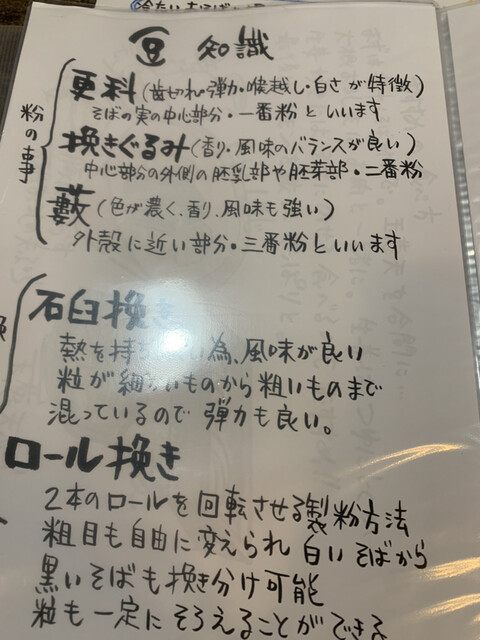 豆知識
粉の事
更科(歯切れ・弾力・喉越し・白さが特徴)
そばの実の中心部分・一番粉といいます
挽きぐるみ(香り・風味のバランスが良い)
中心部分の外側の胚乳部や胚芽部・二番粉
藪(色が濃く、香り、風味も強い)
外殻に近い部分・三番粉といいます
石臼挽き
熱を持ちい為、風味が良い
粒が細かいものから粗いものまで
混っているので弾力も良い。
ロール挽き
2本のロールを回転させる製粉方法
粗目も自由に変えられ白いそばから
黒いそばも挽き分け可能
粒も一定にそろえることができる